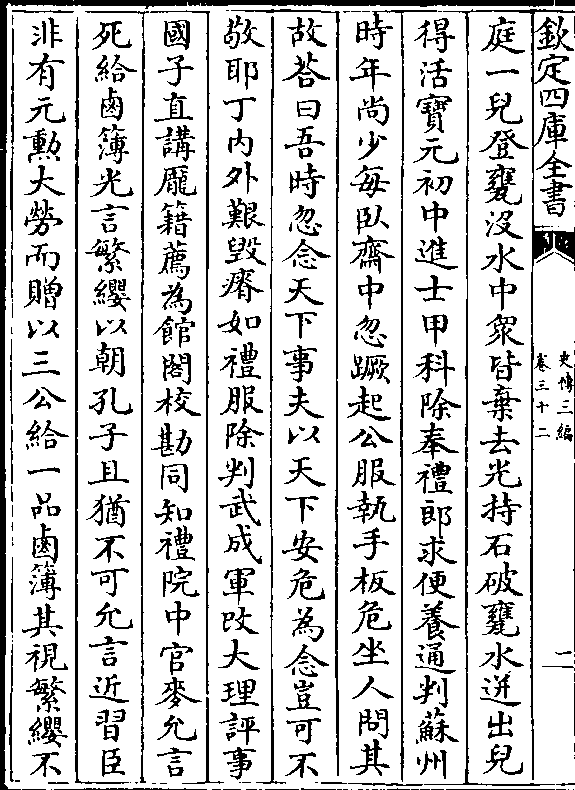 欽定四庫全書
史傳三編
卷三十二
二
庭一兒登甕没水中衆皆棄去光持石破甕水迸出兒
得活寶元初中進士甲科除奉禮郎求便養通判蘇州
時年尚少每臥齋中忽蹶起公服執手板危坐人問其
故荅曰吾時忽念天下事夫以天下安危為念豈可不
敬耶丁内外艱毀瘠如禮服除判武成軍改大理評事
國子直講龎籍薦為館閣校勘同知禮院中官麥允言
死給鹵簿光言繁纓以朝孔子且猶不可允言近習臣
非有元勲大勞而贈以三公給一品鹵簿其視繁纓不